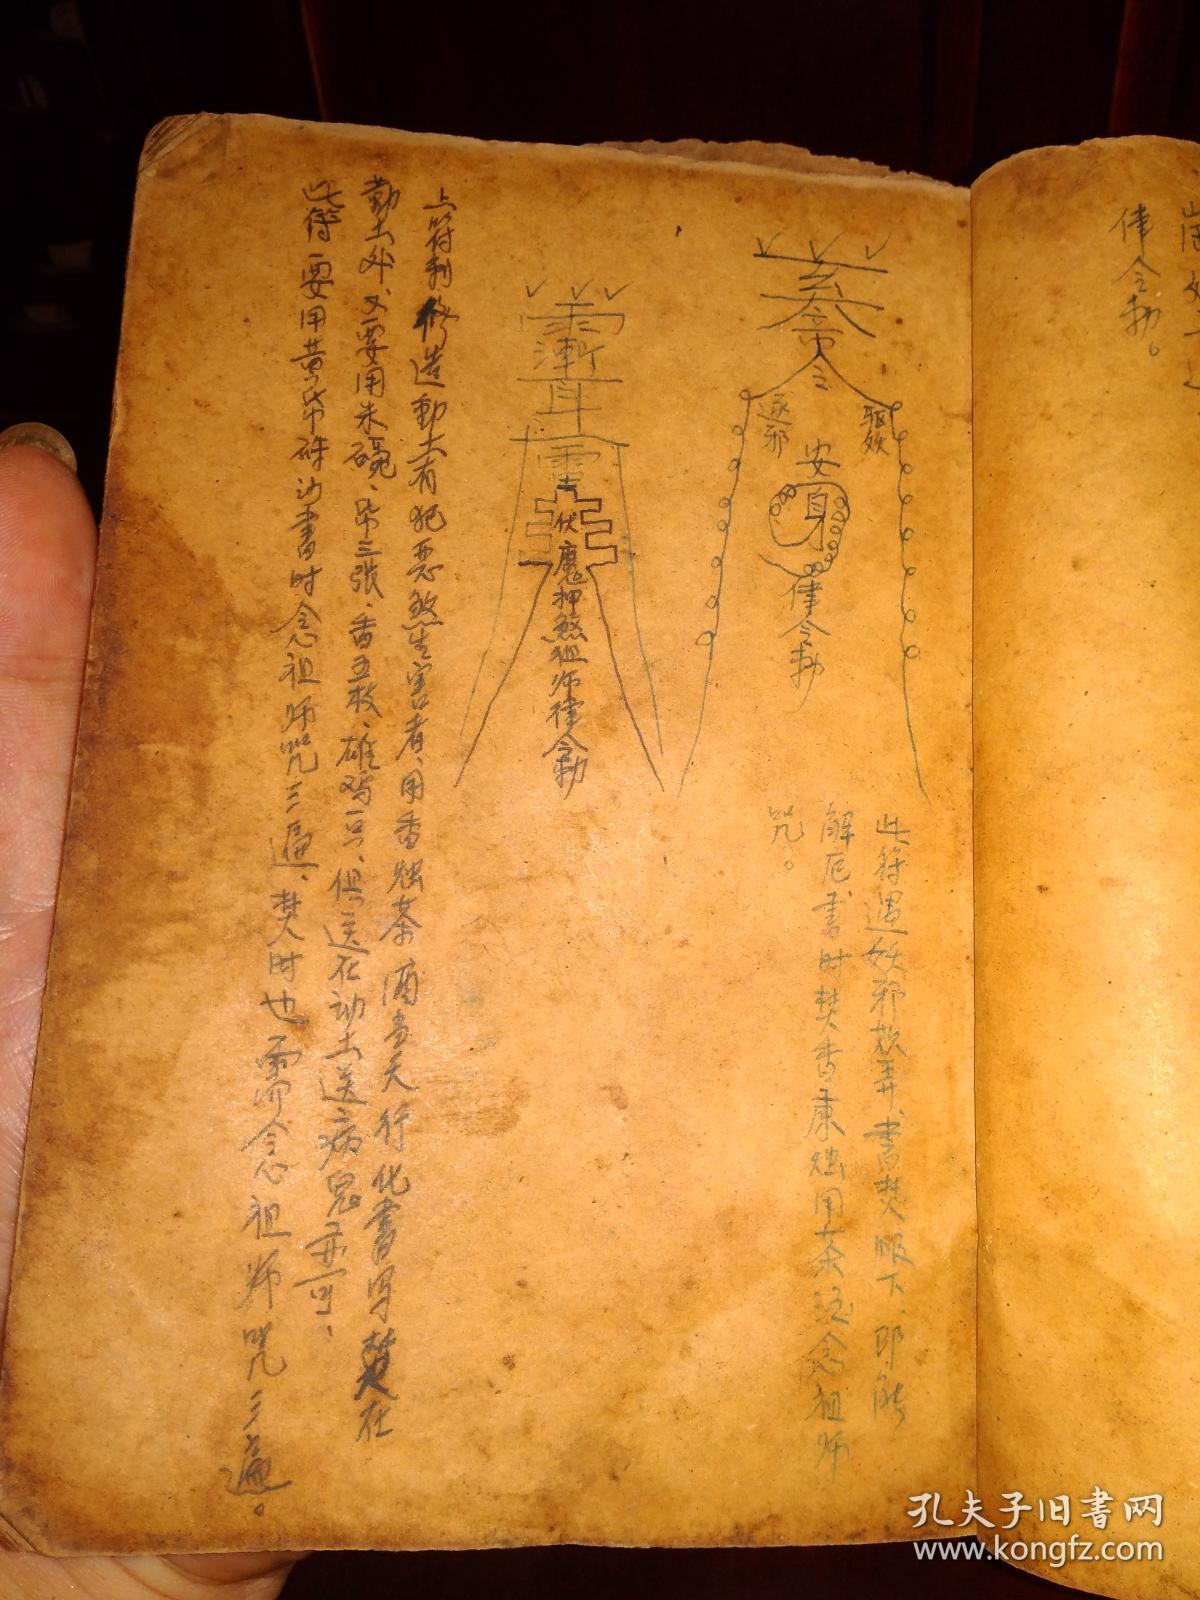 律令勅。
玄
帝
令
驱妖
逐邪
安
身
律令勅
此符遇妖邪欺弄書焚服下、即能
解厄書时焚香秉烛用茶酒念祖师
咒。
雨
漸
耳
雷
伏魔押煞祖师律令勅
上符制修造動土有犯恶煞生害者、用香烛茶酒当天行化書写焚在
動土処、又要用朱砂、帋三张、香五枚、雄鸡一只、俱送在动土送病鬼亦可、
此符要用黄帋硃沙書时念祖师咒三遍、焚时也需念祖师咒三遍。
孔夫子旧書网
www.kongfz.com